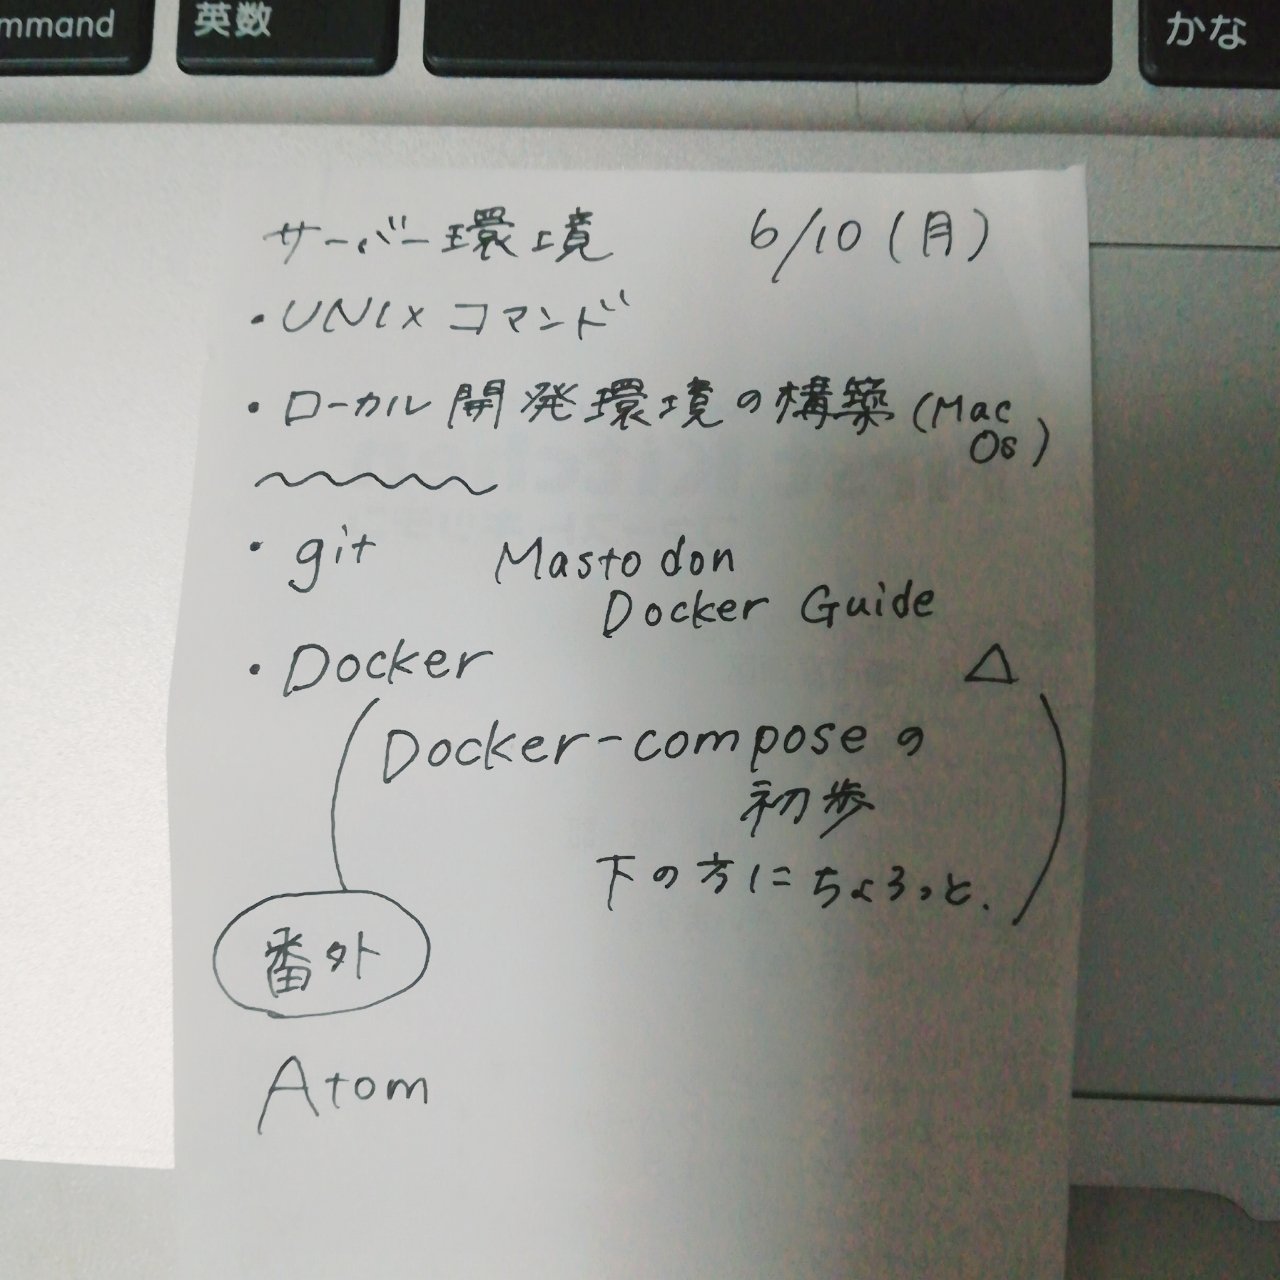 mmand 英数 かな
サーバー環境 6/10(月)
・UNIXコマンド
・ローカル開発環境の構築(Mac
Os)
・git Mastodon
Docker Guide
・Docker △
(Docker-composeの
初歩
下の方にちょろっと.)
番外
Atom